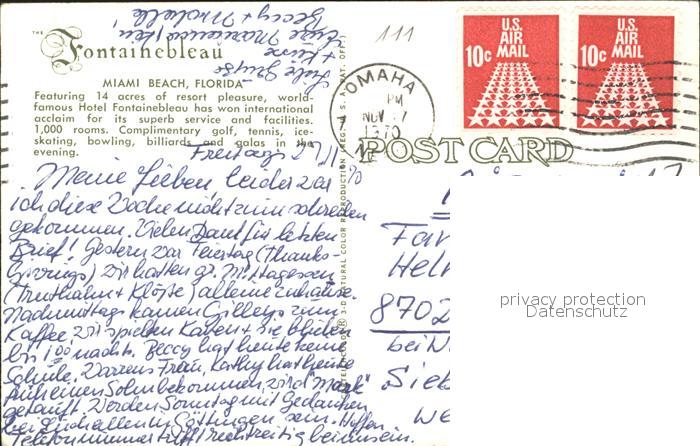 THE
Fontainebleau
MIAMI BEACH, FLORIDA
Featuring 14 acres of resort pleasure, world-
famous Hotel Fontainebleau has won international
acclaim for its superb service and facilities.
1,000 rooms. Complimentary golf, tennis, ice-
skating, bowling, billiards and galas in the
evening.
111
U.S.
AIR
MAIL
10c
U.S.
AIR
MAIL
10c
OMAHA
PM
NOV
1970
POST CARD
Freitag, 27/11 70
Meine Lieben, leider war
ich diese Woche nicht zum schreiben
gekommen. Vielen Dank für letzten
Brief! Gestern war Feiertag (Thanks-
Givings) wir hatten gr. Mittagessen
(Truthahn + Klöße) alleine zuhause.
Nachmittags kamen Gilleys zum
Kaffee, wir spielten Karten + sie blieben
bis 1 00 nachts. Beccy hat heute keine
Schule. Darrens Frau, Kathy hat heute
früh einen Sohn bekommen, wird "Mark"
getauft. Werden Sonntag mit Gedanken
bei Euch allen in Göttingen sein. Hoffen
Telefonnummer trifft rechtzeitig bei Euch ein.
Liebe Grüße
+ Küsse
Eure
Beccy + Michele
Fa
Hel
8702
bei
Sieb
we
privacy protection
Datenschutz